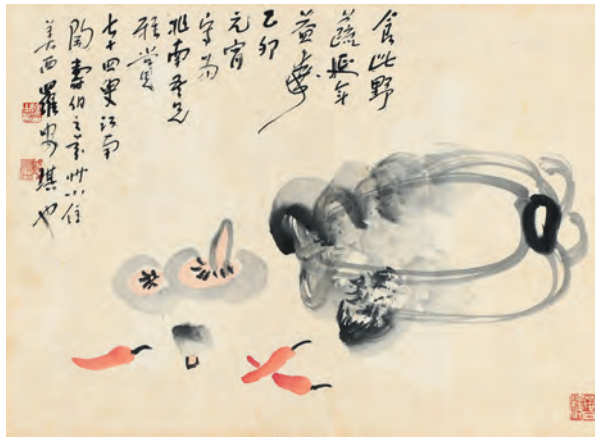 食此野
蔬延年
益壽
乙卯
元宵
寫為
兆南吾兄
雅賞
七十四叟江南
陶壽伯小住
美西羅安琪也